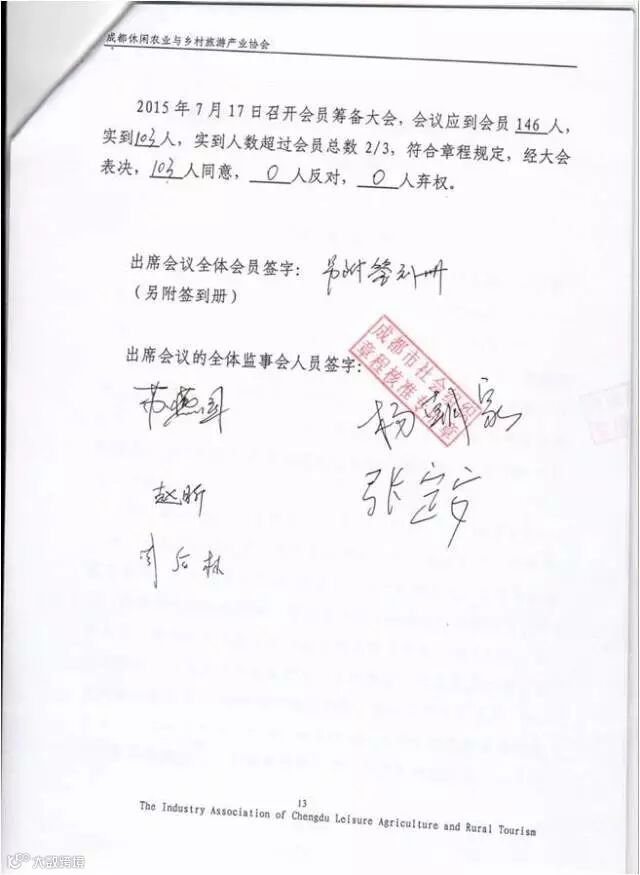 成都休闲农业与乡村旅游产业协会
2015年7月17日召开会员筹备大会，会议应到会员 146 人，
实到103人，实到人数超过会员总数 2/3，符合章程规定，经大会
表决，103人同意，0人反对，0人弃权。
出席会议全体会员签字：另附签到册
（另附签到册）
出席会议的全体监事会人员签字：
成都市社会组织
章程核准专用章
赵昕
13
The Industry Association of Chengdu Leisure Agriculture and Rural Tourism
大数跨境